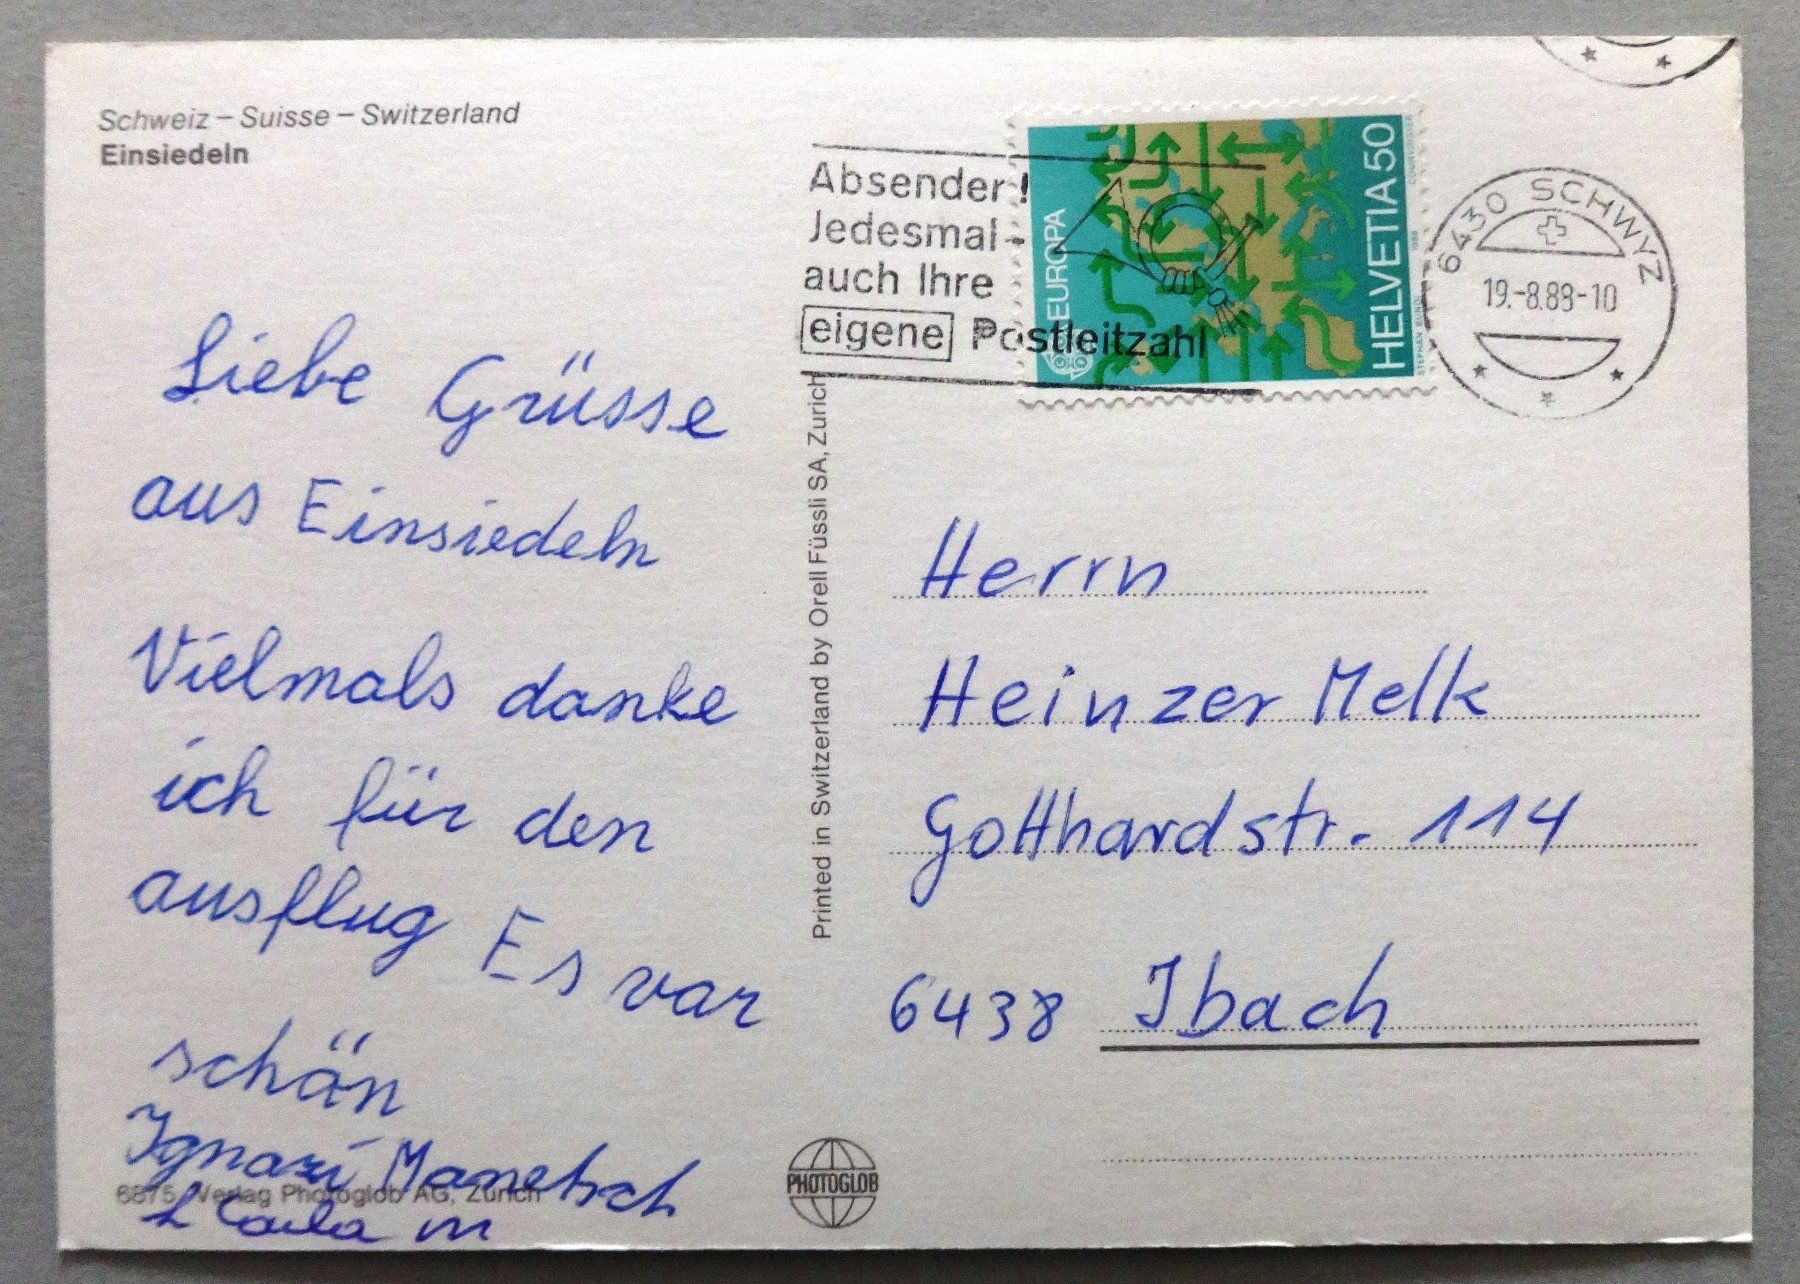 Schweiz – Suisse – Switzerland
Einsiedeln
Absender!
Jedesmal -
auch Ihre
eigene Postleitzahl
EUROPA
HELVETIA 50
6430 SCHWYZ
19.-8.88-10
Liebe Grüsse
aus Einsiedeln
Vielmals danke
ich für den
ausflug Es var
schän
Ignazi Manetsch
6875 Verlag Photoglob AG, Zürich
Printed in Switzerland by Orell Füssli SA, Zurich
Herrn
Heinzer Melk
Gotthardstr. 114
6438 Ibach
PHOTOGLOB